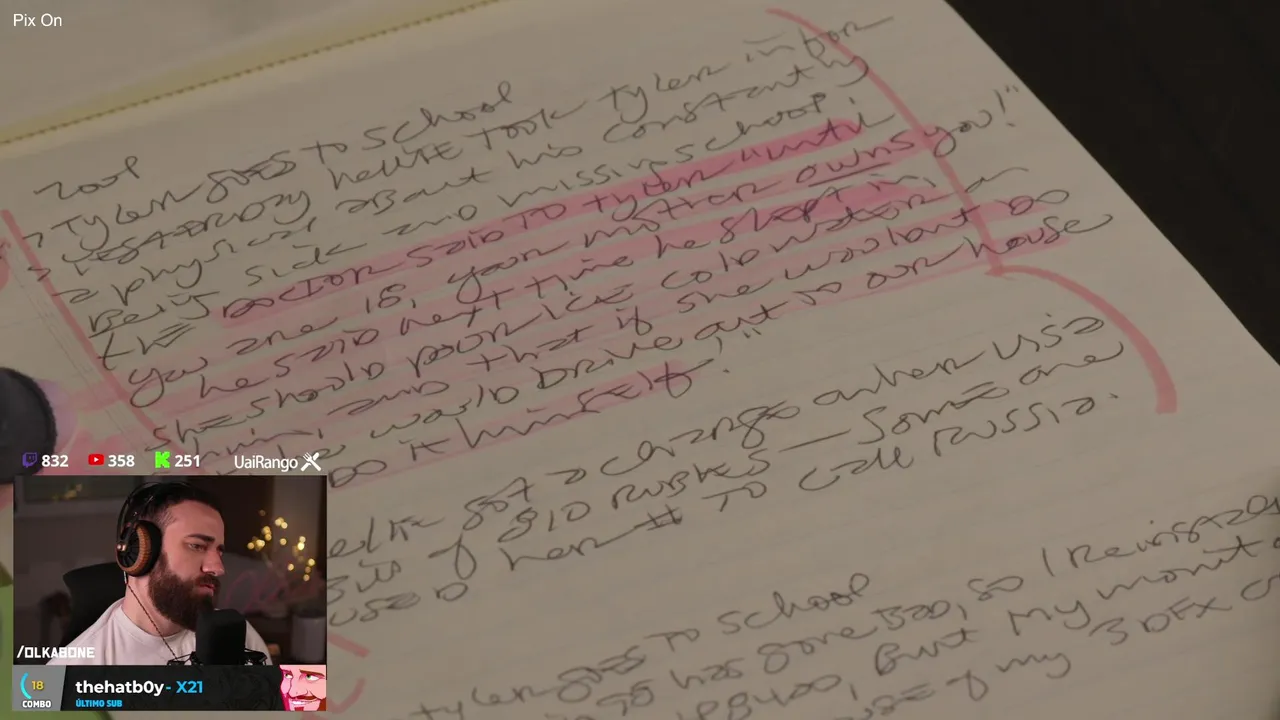 Pix On
Tyler goes to school
yesterday Nellie took Tyler in for
a physical, about his constantly
Being sick and missing school,
the Doctor said to Tyler "until
you are 18, your mother owns you!"
he said next time he slept in,
she should pour ice cold water on
him, and that if she wouldn't do
he would Drive out to our house
Do it himself!"
got a charge when Visa
of 810 Rubles — Some one
used her # to call Russia.
Tyler goes to school
has gone Bad, so I Reinstalled
, But My monitor
use of my 3DFX
832 358 251 UaiRango
/OLKABONE
18
COMBO
thehatb0y - X21
ÚLTIMO SUB